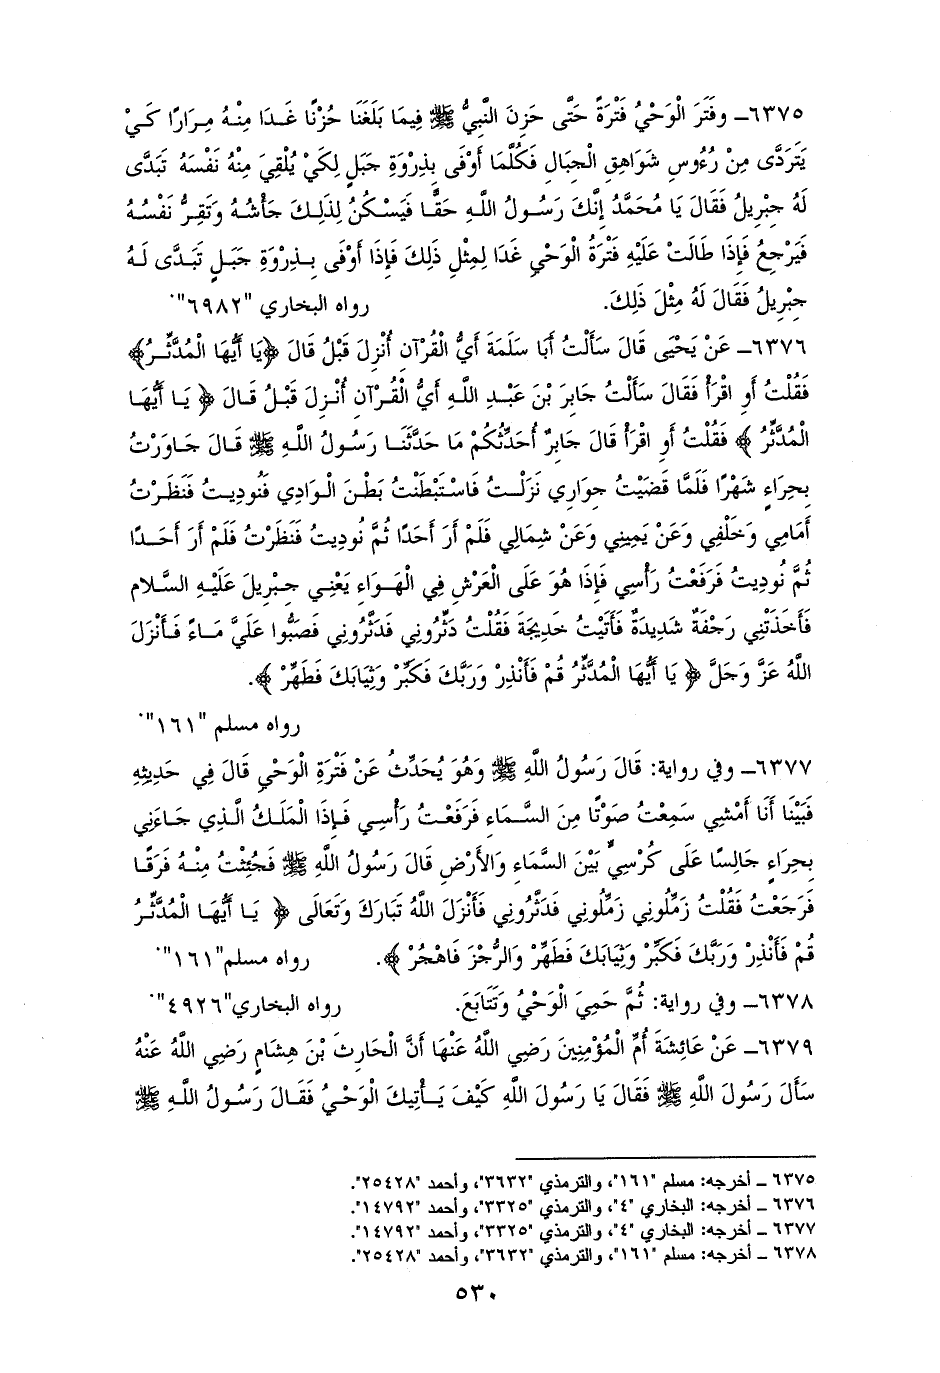 ٦٣٧٥ــ وَفَتَرَ الْوَحْيُ فَتْرَةً حَتَّى حَزِنَ النَّبِيُّ ﷺ فِيمَا بَلَغَنَا حُزْنًا غَـدَا مِنْـهُ مِـرَارًا كَـيْ
يَتَرَدَّى مِنْ رُءُوسِ شَوَاهِقِ الْجِبَالِ فَكُلَّمَا أَوْفَى بِذِرْوَةِ جَبَلٍ لِكَيْ يُلْقِيَ مِنْهُ نَفْسَهُ تَبَدَّى
لَهُ جِبْرِيلُ فَقَالَ يَا مُحَمَّدُ إِنَّكَ رَسُـولُ اللَّـهِ حَقًّا فَيَسْكُنُ لِذَلِـكَ جَأْشُـهُ وَتَقِرُّ نَفْسُـهُ
فَيَرْجِعُ فَإِذَا طَالَتْ عَلَيْهِ فَتْرَةُ الْوَحْيِ غَدَا لِمِثْلِ ذَلِكَ فَإِذَا أَوْفَى بِـذِرْوَةِ جَبَـلٍ تَبَـدَّى لَـهُ
جِبْرِيلُ فَقَالَ لَهُ مِثْلَ ذَلِكَ. رواه البخاري "٦٩٨٢".
٦٣٧٦ــ عَنْ يَحْيَى قَالَ سَأَلْتُ أَبَا سَلَمَةَ أَيُّ الْقُرْآنِ أُنْزِلَ قَبْلُ قَالَ ﴿يَا أَيُّهَا الْمُدَّثِّـرُ﴾
فَقُلْتُ أَوِ اقْرَأْ فَقَالَ سَأَلْتُ جَابِرَ بْنَ عَبْـدِ اللَّـهِ أَيُّ الْقُرْآنِ أُنْـزِلَ قَبْـلُ قَـالَ ﴿ يَـا أَيُّهَـا
الْمُدَّثِّرُ ﴾ فَقُلْتُ أَوِ اقْرَأْ قَالَ جَابِرٌ أُحَدِّثُكُمْ مَا حَدَّثَنَـا رَسُـولُ اللَّـهِ ﷺ قَـالَ جَـاوَرْتُ
بِحِرَاءٍ شَهْرًا فَلَمَّا قَضَيْتُ جِوَارِي نَزَلْـتُ فَاسْتَبْطَنْتُ بَطْـنَ الْـوَادِي فَنُودِيـتُ فَنَظَـرْتُ
أَمَامِي وَخَلْفِي وَعَنْ يَمِينِي وَعَنْ شِمَالِي فَلَمْ أَرَ أَحَدًا ثُمَّ نُودِيتُ فَنَظَرْتُ فَلَمْ أَرَ أَحَـدًا
ثُمَّ نُودِيتُ فَرَفَعْتُ رَأْسِي فَإِذَا هُوَ عَلَى الْعَرْشِ فِي الْهَوَاءِ يَعْنِي جِبْرِيلَ عَلَيْهِ السَّلَام
فَأَخَذَتْنِي رَجْفَةٌ شَدِيدَةٌ فَأَتَيْتُ خَدِيجَةَ فَقُلْتُ دَثِّرُونِي فَدَثَّرُونِي فَصَبُّوا عَلَيَّ مَـاءً فَـأَنْزَلَ
اللَّهُ عَزَّ وَجَلَّ ﴿ يَا أَيُّهَا الْمُدَّثِّرُ قُمْ فَأَنْذِرْ وَرَبَّكَ فَكَبِّرْ وَثِيَابَكَ فَطَهِّرْ ﴾.
رواه مسلم "١٦١".
٦٣٧٧ــ وفي رواية: قَالَ رَسُولُ اللَّهِ ﷺ وَهُوَ يُحَدِّثُ عَنْ فَتْرَةِ الْوَحْيِ قَالَ فِي حَدِيثِهِ
فَبَيْنَا أَنَا أَمْشِي سَمِعْتُ صَوْتًا مِنَ السَّمَاءِ فَرَفَعْـتُ رَأْسِي فَـإِذَا الْمَلَـكُ الَّـذِي جَـاءَنِي
بِحِرَاءٍ جَالِسًا عَلَى كُرْسِيٍّ بَيْنَ السَّمَاءِ وَالأَرْضِ قَالَ رَسُولُ اللَّهِ ﷺ فَجُئِثْتُ مِنْـهُ فَرَقًـا
فَرَجَعْتُ فَقُلْتُ زَمِّلُونِي زَمِّلُونِي فَدَثَّرُونِي فَأَنْزَلَ اللَّهُ تَبَارَكَ وَتَعَالَى ﴿ يَـا أَيُّهَـا الْمُدَّثِّـرُ
قُمْ فَأَنْذِرْ وَرَبَّكَ فَكَبِّرْ وَثِيَابَكَ فَطَهِّرْ وَالرُّجْزَ فَاهْجُرْ ﴾. رواه مسلم"١٦١".
٦٣٧٨ــ وفي رواية: ثُمَّ حَمِيَ الْوَحْيُ وَتَتَابَعَ. رواه البخاري"٤٩٢٦".
٦٣٧٩ــ عَنْ عَائِشَةَ أُمِّ الْمُؤْمِنِينَ رَضِي اللَّهُ عَنْهَا أَنَّ الْحَارِثَ بْنَ هِشَامٍ رَضِي اللَّهُ عَنْهُ
سَأَلَ رَسُولَ اللَّهِ ﷺ فَقَالَ يَا رَسُولَ اللَّهِ كَيْفَ يَـأْتِيكَ الْوَحْـيُ فَقَـالَ رَسُـولُ اللَّـهِ ﷺ
٦٣٧٥ ــ أخرجه: مسلم "١٦١"، والترمذي "٣٦٣٢"، وأحمد "٢٥٤٢٨".
٦٣٧٦ ــ أخرجه: البخاري "٤"، والترمذي "٣٣٢٥"، وأحمد "١٤٧٩٢".
٦٣٧٧ ــ أخرجه: البخاري "٤"، والترمذي "٣٣٢٥"، وأحمد "١٤٧٩٢".
٦٣٧٨ ــ أخرجه: مسلم "١٦١"، والترمذي "٣٦٣٢"، وأحمد "٢٥٤٢٨".
٥٣٠